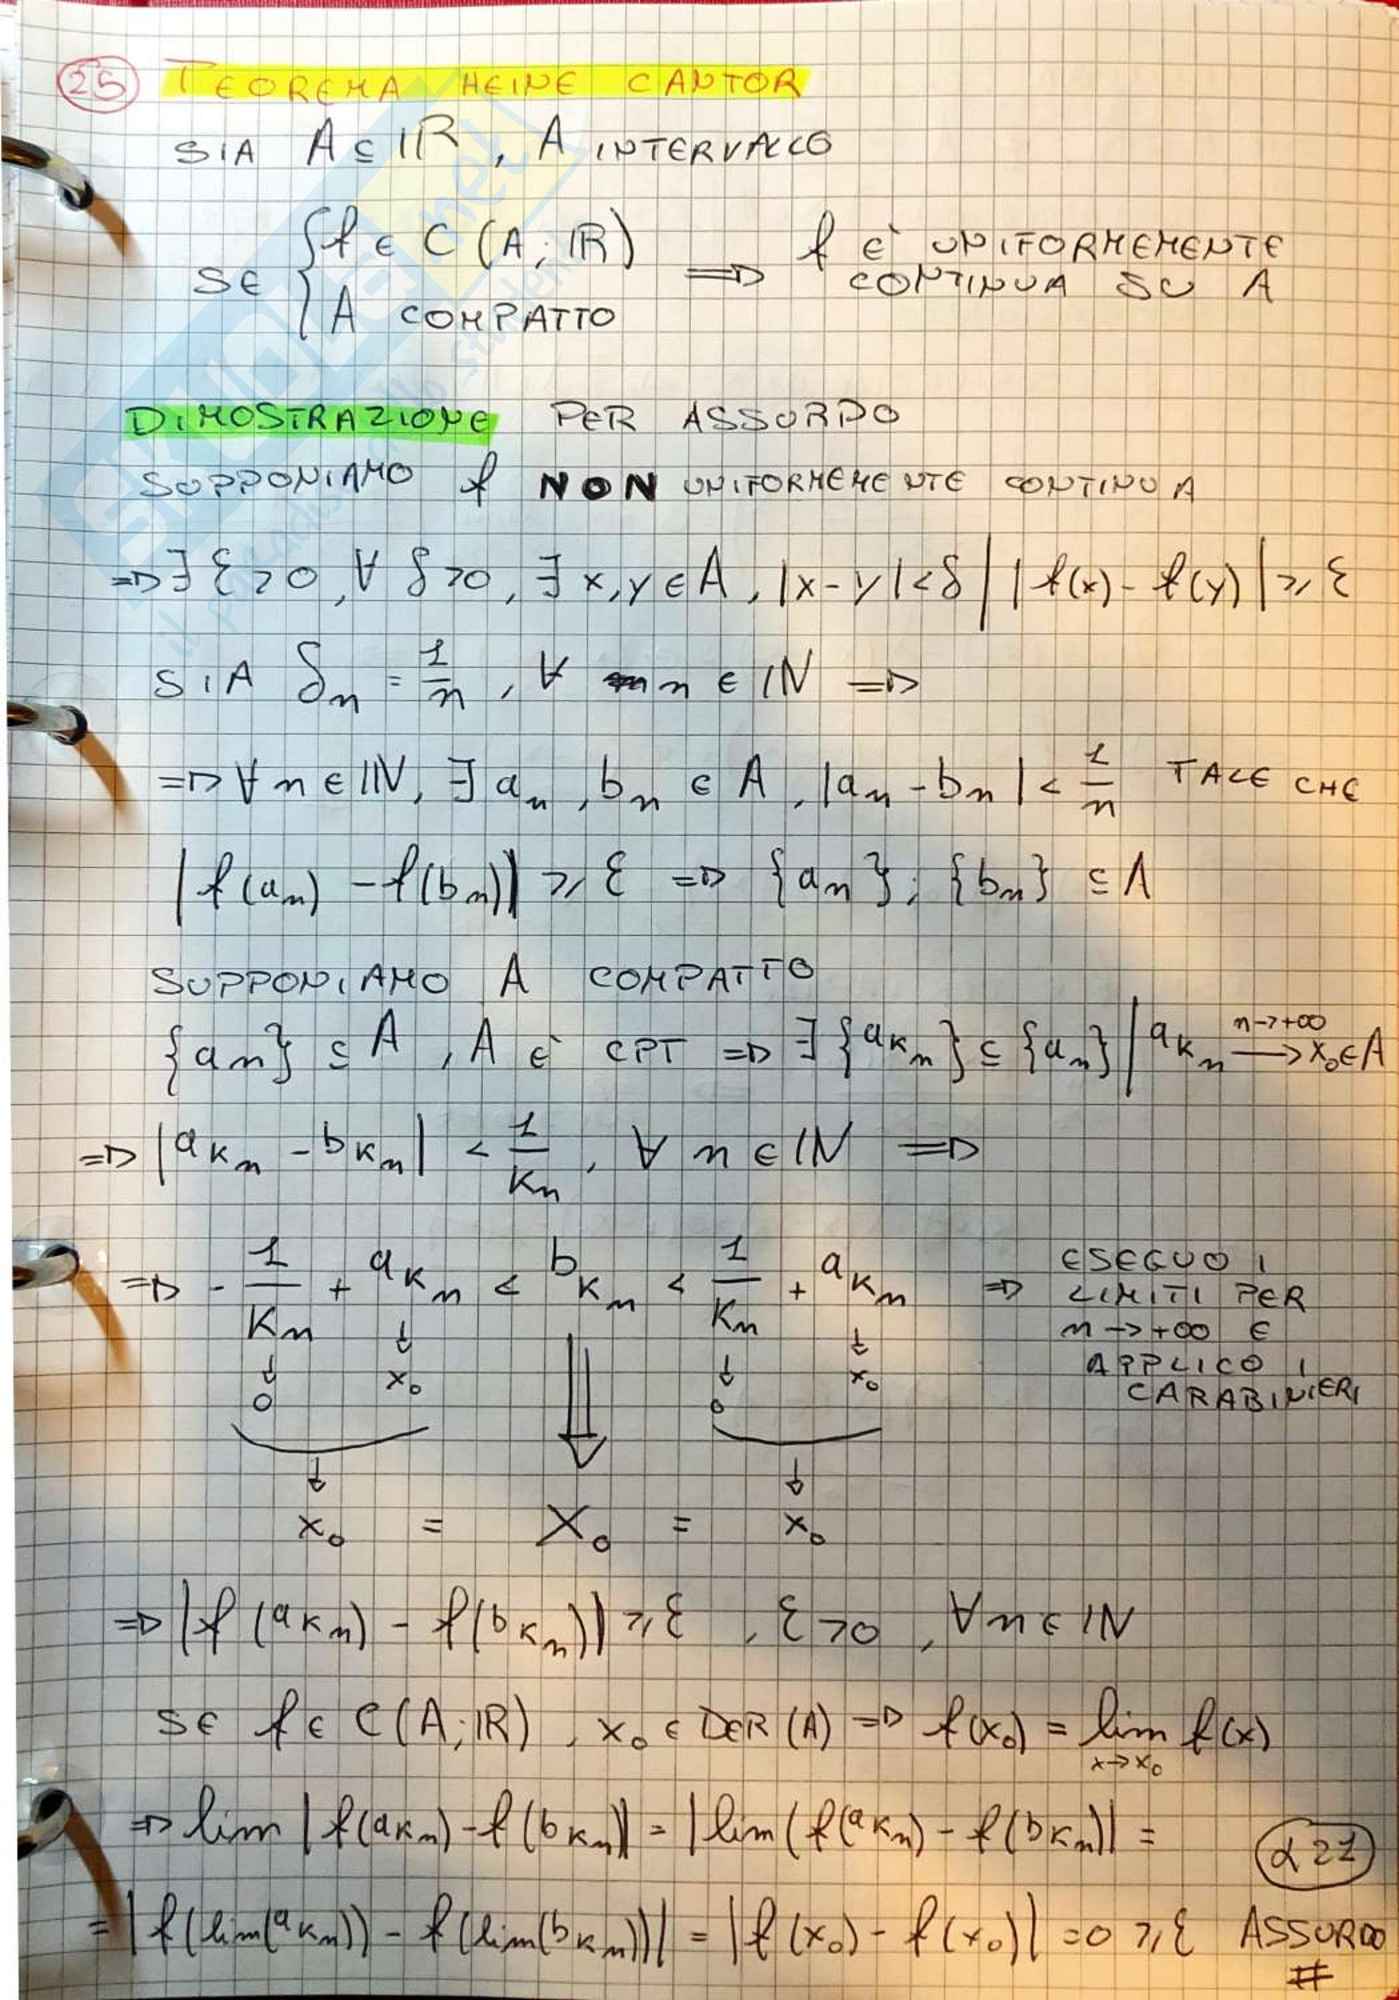 25 TEOREMA HEINE CANTOR
SIA A ⊆ ℝ, A INTERVALLO
SE { f ∈ C(A; ℝ) ⇒ f È UNIFORMEMENTE
A COMPATTO CONTINUA SU A
DIMOSTRAZIONE PER ASSURDO
SUPPONIAMO f NON UNIFORMEMENTE CONTINUA
⇒ ∃ ε > 0, ∀ δ > 0, ∃ x, y ∈ A, |x - y| < δ | |f(x) - f(y)| ≥ ε
SIA δ_n = 1/n, ∀ n ∈ ℕ ⇒
⇒ ∀ n ∈ ℕ, ∃ a_n, b_n ∈ A, |a_n - b_n| < 1/n TALE CHE
|f(a_n) - f(b_n)| ≥ ε ⇒ {a_n}; {b_n} ⊆ A
SUPPONIAMO A COMPATTO
{a_n} ⊆ A, A È CPT ⇒ ∃ {a_{k_n}} ⊆ {a_n} | a_{k_n} n→+∞ ⟶ x_0 ∈ A
⇒ |a_{k_n} - b_{k_n}| < 1/k_n, ∀ n ∈ ℕ ⇒
⇒ - 1/k_n + a_{k_n} < b_{k_n} < 1/k_n + a_{k_n} ⇒ ESEGUO I
LIMITI PER
n → +∞ E
APPLICO I
CARABINIERI
↓ 0 ↓ x_0 ⇓ ↓ 0 ↓ x_0
↓ ↓
x_0 = x_0 = x_0
⇒ |f(a_{k_n}) - f(b_{k_n})| ≥ ε, ε > 0, ∀ n ∈ ℕ
SE f ∈ C(A; ℝ), x_0 ∈ DER(A) ⇒ f(x_0) = lim_{x→x_0} f(x)
⇒ lim |f(a_{k_n}) - f(b_{k_n})| = |lim(f(a_{k_n}) - f(b_{k_n})| =
= |f(lim(a_{k_n})) - f(lim(b_{k_n}))| = |f(x_0) - f(x_0)| = 0 ≥ ε ASSURDO
#